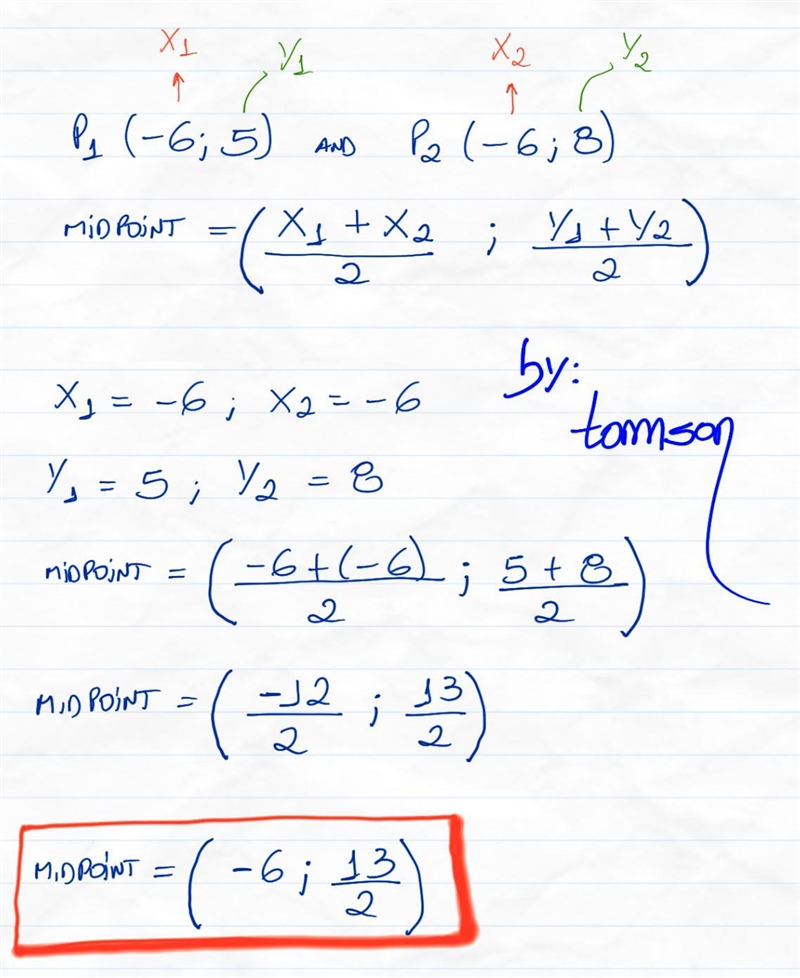 X₁ Y₁ X₂ Y₂
P₁ (-6; 5) AND P₂ (-6; 8)
MiDPOiNT = (X₁ + X₂ / 2 ; Y₁ + Y₂ / 2)
by:
tomson
X₁ = -6 ; X₂ = -6
Y₁ = 5 ; Y₂ = 8
MiDPOiNT = (-6 + (-6) / 2 ; 5 + 8 / 2)
MiDPOiNT = (-12 / 2 ; 13 / 2)
MiDPOiNT = (-6 ; 13 / 2)